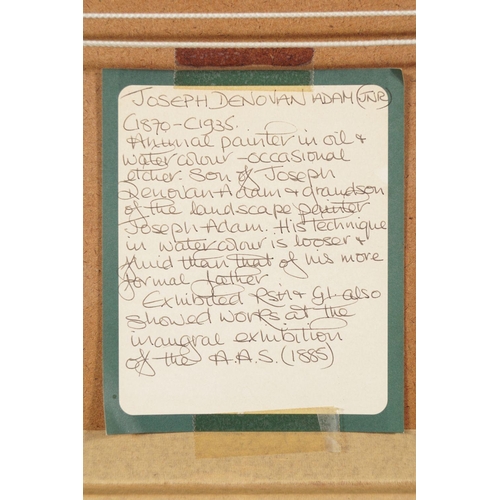 JOSEPH DENOVAN ADAM (JNR)
C1870-C1935.
Animal painter in oil &
watercolour - occasional
etcher. Son of Joseph
Denovan Adam & grandson
of the landscape painter
Joseph Adam. His technique
in watercolour is looser &
fluid than that of his more
formal father
Exhibited RSA & GI also
showed works at the
inaugral exhibition
of the A.A.S. (1885)